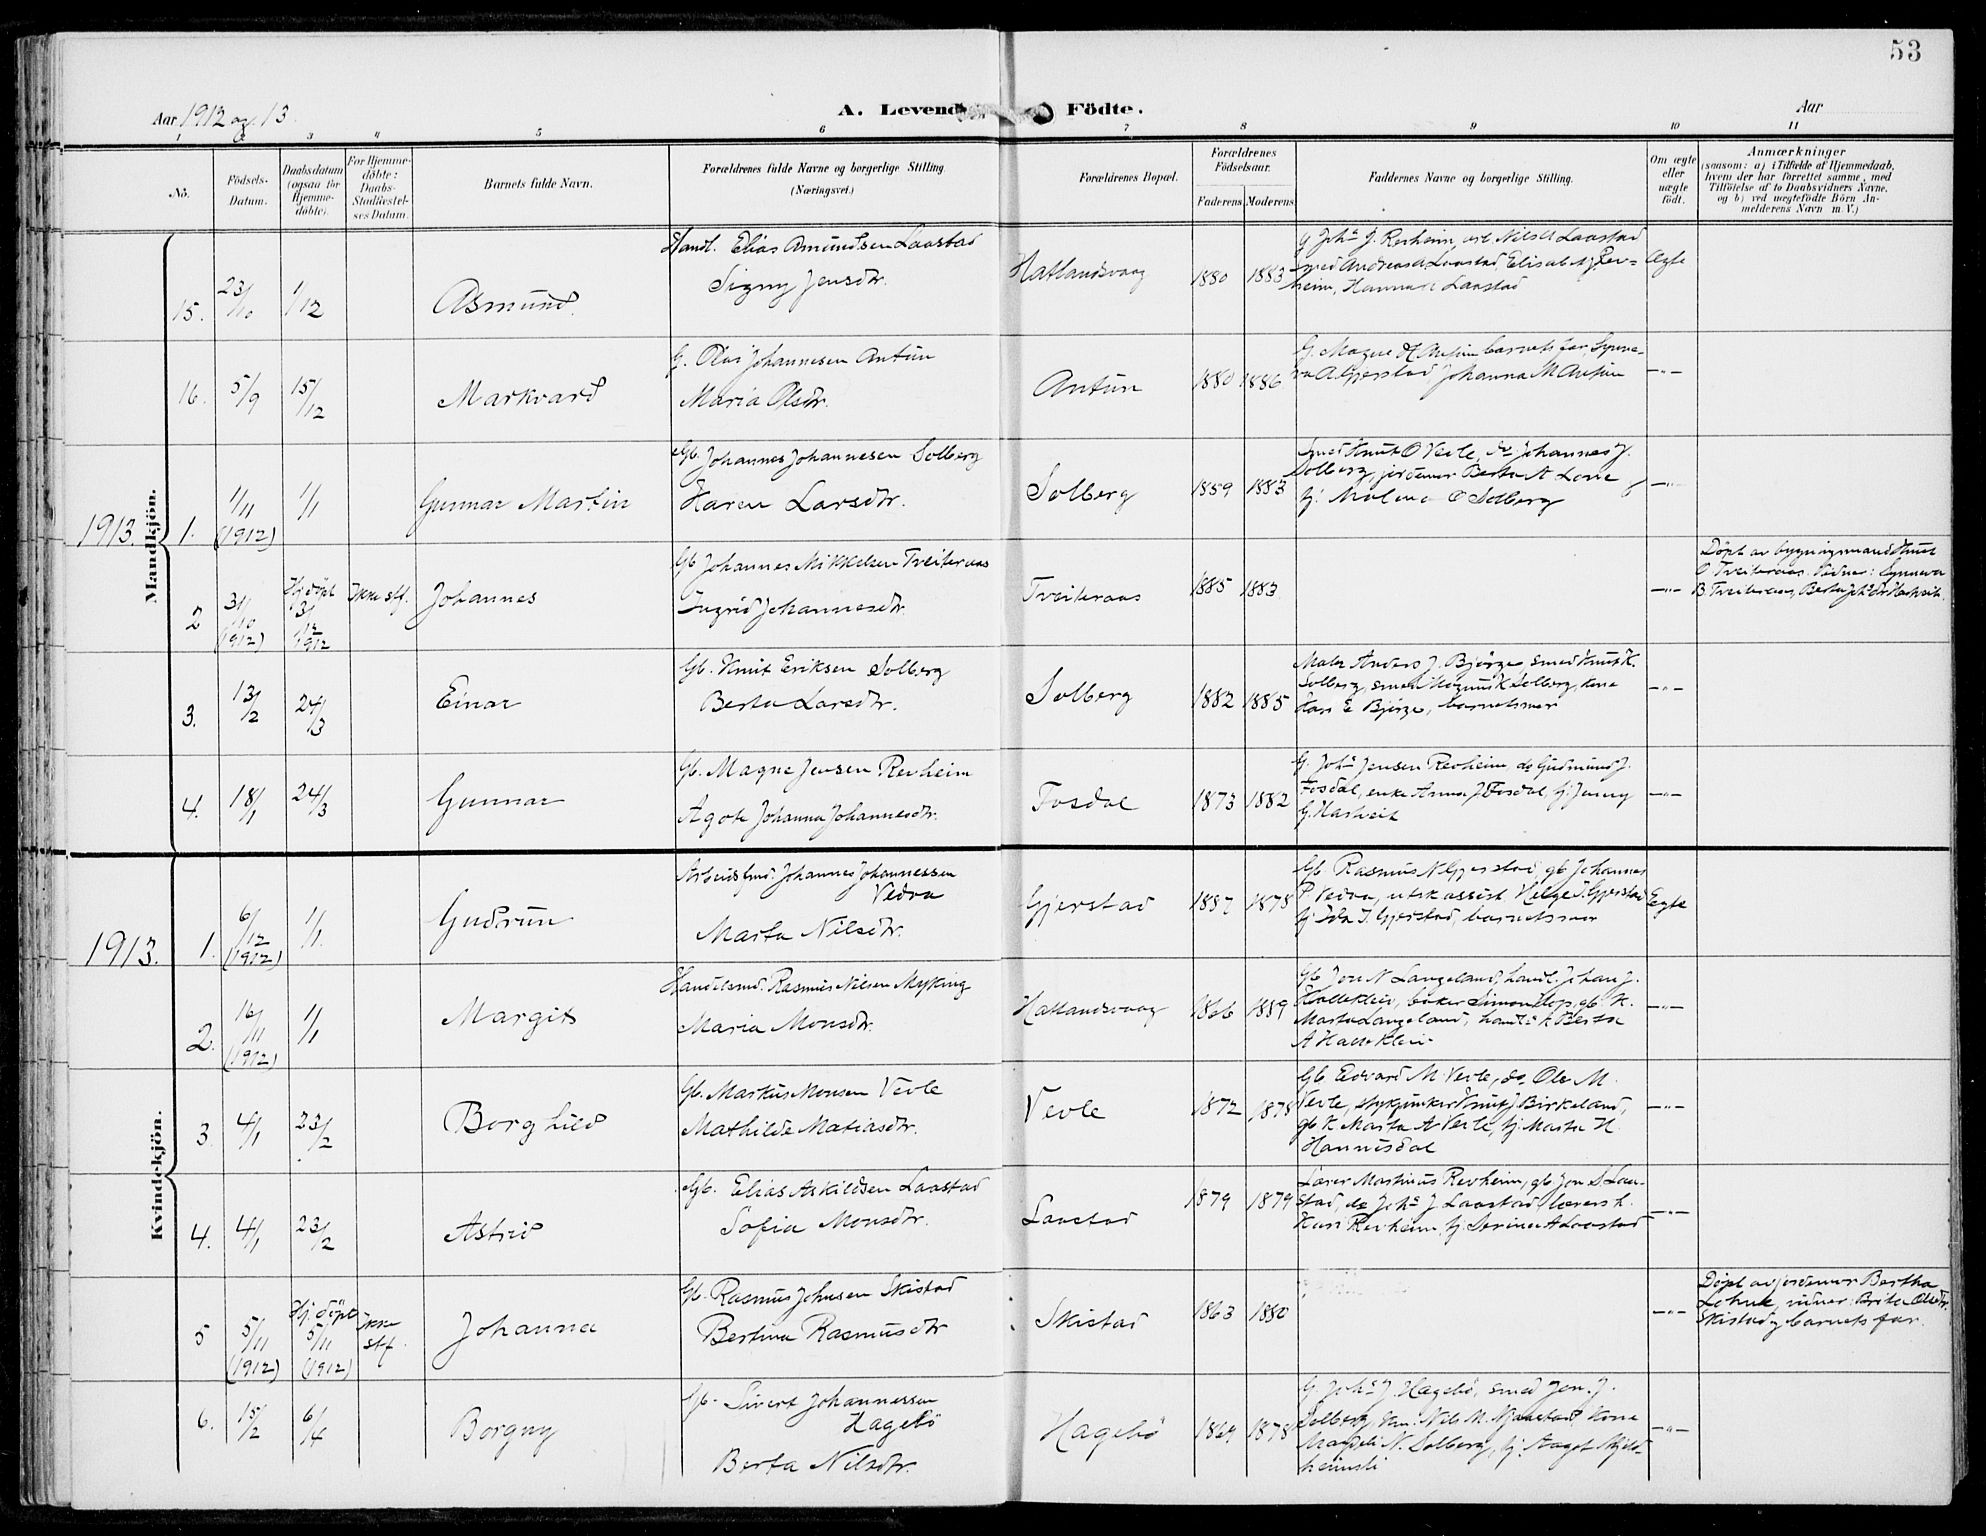 53
Aar 1912 og 13.
A. Levende Födte.
Aar
1 2 3 4 5 6 7 8 9 10 11
No.
Födsels-Datum.
Daabsdatum (ogsaa for Hjemme-döbte).
For Hjemme-döbte: Daabs-Stadfæstel-ses Datum.
Barnets fulde Navn.
Forældrenes fulde Navne og borgerlige Stilling (Næringsvei.)
Forældrenes Bopæl.
Forældrenes Födselsaar.
Faderens Moderens
Faddernes Navne og borgerlige Stilling.
Om ægte eller uægte födt.
Anmærkninger
(saasom: a) i Tilfælde af Hjemmedaab, hvem der har forrettet samme, med Tilföielse af to Daabsvidners Navne, og b) ved uægtefödte Börn An-melderens Navn m. V.)
Mandkjön.
15. 23/10 1/12 Asmund
Handl. Elias Amundsen Laastad
Signy Jensdtr.
Hatlandsvaag 1880 1883
G Johs J. Revheim, Nils Laastad
smed Andreas Laastad, Elisabet J Rev=
heim, Hanna Laastad
Ægte
16. 5/9 15/12 Markvard
G. Olai Johannesen Antun
Maria Olsdtr.
Antun 1880 1886
G. Magne Antun barnets far, Synne-
va A. Gjerstad Johanna M Antun
—"—
1913. 1. 1/11 (1912) 1/1 Gunnar Martin
Gb. Johannes Johannesen Solberg
Karen Larsdtr.
Solberg 1859 1883
Smed Knut O Vevle, do Johannes J.
Solberg, jordemor Berta A Lone
tj. Malene O Solberg
—"—
2 31/10 (1912) Hj döpt 31/12 1912 Ikke stf. Johannes
Gb Johannes Mikkelsen Tveiteraas
Ingrid Johannesdtr.
Tveiteraas 1885 1883
—"—
Döpt av bygningsmand Knut
O Tveiteraas. Vidner: Synneva
B Tveiteraas, Berta Johsdtr Hastveit.
3. 13/2 24/3 Einar
Gb. Knut Eriksen Solberg
Berta Larsdtr.
Solberg 1882 1885
Maler Anders J. Bjørge smed Knut K.
Solberg, smed Magnus K Solberg, kone
Kari E Bjørge, barnets mor
—"—
4. 18/1 24/3 Gunnar
Gb. Magne Jensen Revheim
Agote Johanna Johannesdtr.
Fosdal 1873 1882
G. Johs Jensen Revheim, do Gudmund J.
Fosdal, enke Anna J Fosdal, tj Jenny
G. Hastveit
—"—
Kvindekjön.
1913. 1. 6/12 (1912) 1/1. Gudrun
Arbeidsfmd. Johannes Johannessen
Vedva
Marta Nilsdtr.
Gjerstad 1887 1878
Gb Rasmus N Gjerstad, gb Johannes
P Vedva, utsk.assist Helge I. Gjerstad
tj Ida I. Gjerstad, barnets mor
Egte
2. 16/11 (1912) 1/1 Margit
Handelsmd. Rasmus Nilsen Myking
Maria Monsdtr.
Hatlandsvaag 1866 1889
Gb Jon N Langeland, handl. Johan J.
Halleklev, baker Simon Hop, gb k.
Marta Langeland, handls k Berta
A Halleklev
—"—
3. 4/1 23/2 Borghild
Gb. Markus Monsen Vevle
Mathilde Matiasdtr.
Vevle 1872 1878
Gb. Edvard M. Vevle, do Ole M.
Vevle, Knut J Birkeland,
gb k Marta A Vevle, tj Marta H.
Hannisdal
—"—
4. 4/1 23/2 Astrid
Gb. Elias Askildsen Laastad
Sofia Monsdtr.
Laastad 1879 1879
Lærer Martinus Revheim, gb Jon S Laa-
stad, do Johs J Laastad lærers k.
Kari Revheim, tj Serina A Laastad
—"—
5 5/11 (1912) Hj. döpt 5/11 (1912) Ikke stf. Johanna
Gb. Rasmus Johnsen Skistad
Bertina Rasmusdtr
Skistad 1863 1880
—"—
Döpt av jordemor Bertha
Lohne, vidner: Brita Olsdtr.
Skistad og barnets far.
6. 15/2 6/4 Borgny
Gb. Sivert Johannessen
Hagebö
Berta Nilsdtr.
Hagebö 1869 1878
G. Johs J. Hagebö, smed Jon. J.
Solberg, Nils M. Njaastad, kone
Magdeli N. Solberg, tj. Aagot
—"—